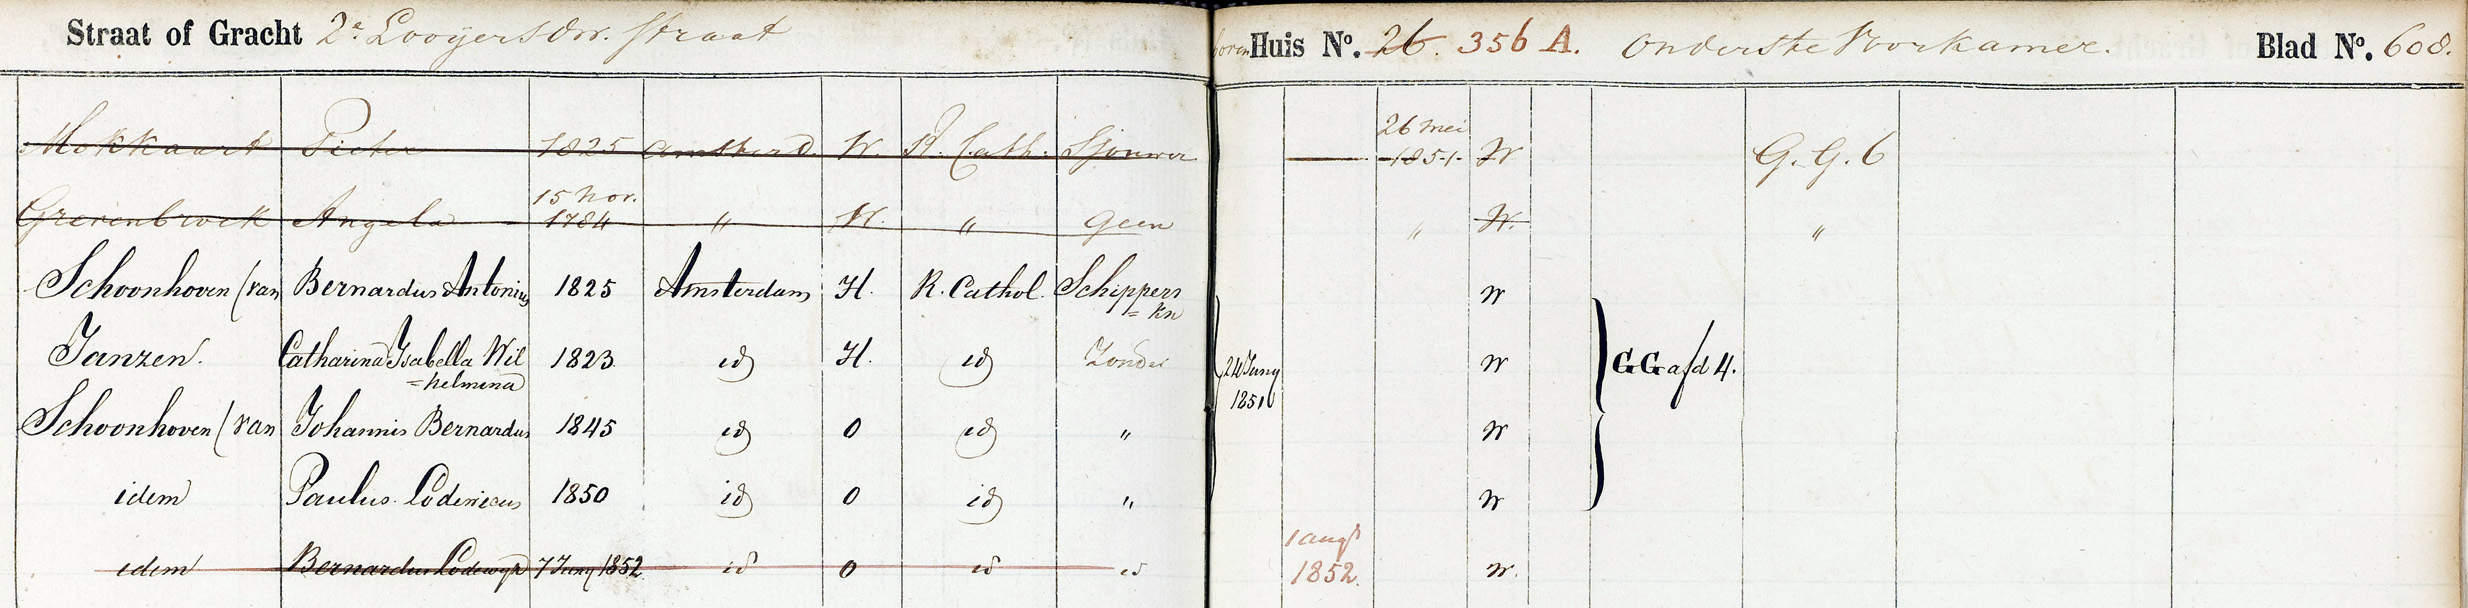 Straat of Gracht 2e Looyersdw. straat Huis No. 26. 356 A. onderste Voorkamer. Blad No. 608.
26 mei
Mokkaart Pieter 1825 Amsterd. W. R. Cath. Sjouwer 1851 W G. G. 6
15 Nov.
Grevenbroek Angela 1784 " W. " geen " W. "
Schoonhoven (van Bernardus Antonius 1825 Amsterdam H. R. Cathol. Schippers W
= kn
Janzen. Catharina Isabella Wil 1823 id H. id Zonder 24 Juny W GG afd 4.
= helmina 1851
Schoonhoven (van Johannis Bernardus 1845 id O id " W
idem Paulus Lodewicus 1850 id O id " W
1 augt
idem Bernardus Lodewyk 7 Juny 1852 id O id id 1852. W.